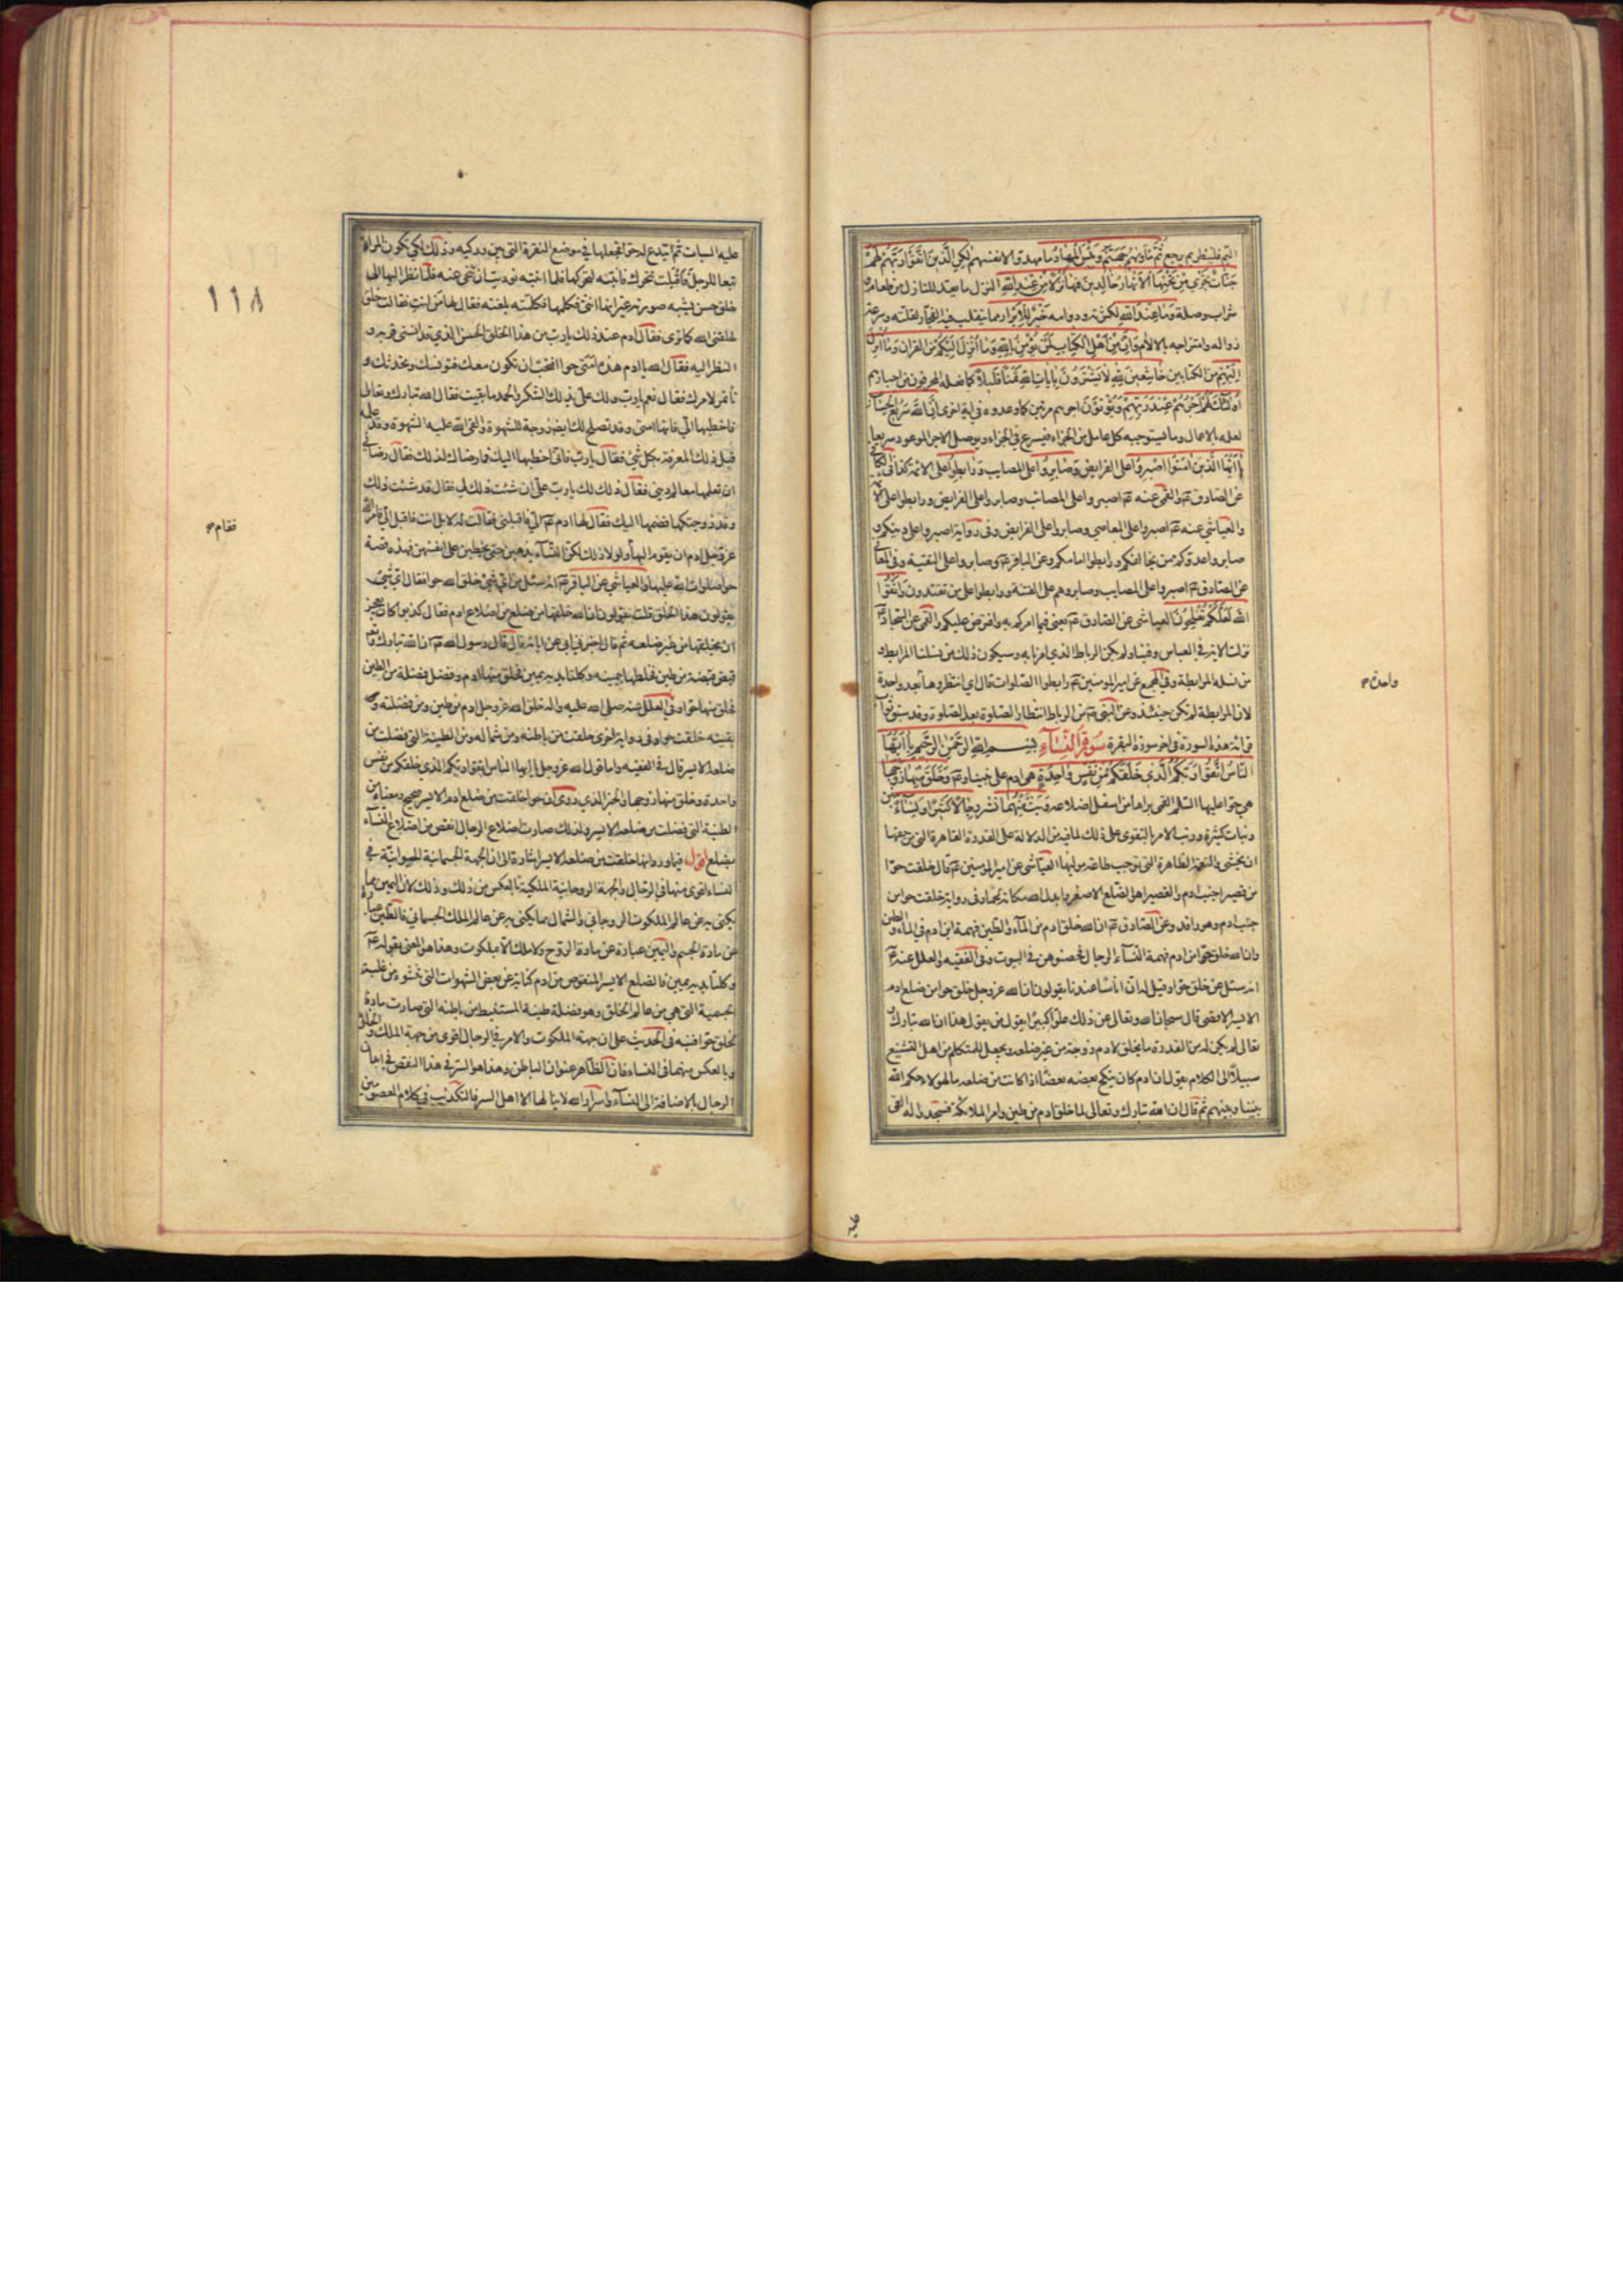 اليم فلينظر بم يرجع ثُمَّ مَأْوَاهُمْ جَهَنَّمُ وَبِئْسَ الْمِهَادُ ما مهدوا لانفسهم لَكِنِ الَّذِينَ اتَّقَوْا رَبَّهُمْ لَهُمْ
جَنَّاتٌ تَجْرِي مِنْ تَحْتِهَا الْأَنْهَارُ خَالِدِينَ فِيهَا نُزُلًا مِنْ عِنْدِ اللَّهِ النزل ما يعد للنازل من طعام و
شراب وصلة وَمَا عِنْدَ اللَّهِ لكثرته ودوامه خَيْرٌ لِلْأَبْرَارِ مما يتقلب فيه الفجار لقلته وسرعة
زواله وامتزاجه بالالام وَإِنَّ مِنْ أَهْلِ الْكِتَابِ لَمَنْ يُؤْمِنُ بِاللَّهِ وَمَا أُنْزِلَ إِلَيْكُمْ من القران وَمَا أُنْزِلَ
إِلَيْهِمْ من الكتابين خَاشِعِينَ لِلَّهِ لَا يَشْتَرُونَ بِآيَاتِ اللَّهِ ثَمَنًا قَلِيلًا كما فعله المحرفون من احبارهم
أُولَئِكَ لَهُمْ أَجْرُهُمْ عِنْدَ رَبِّهِمْ ويؤتون اجرهم مرتين كما وعدوه في اية اخرى إِنَّ اللَّهَ سَرِيعُ الْحِسَابِ
لعلمه بالاعمال وما يستوجبه كل عامل من الجزاء فيسرع في الجزاء ويوصل الاجر الموعود سريعا
يَا أَيُّهَا الَّذِينَ آمَنُوا اصْبِرُوا على الفرايض وَصَابِرُوا على المصايب وَرَابِطُوا على الائمة كذا في الكافي
عن الصادق ع والقمي عنه ع اصبروا على المصائب وصابروا على الفرايض ورابطوا على الائمة
والعياشي عنه ع اصبروا على المعاصي وصابروا على الفرايض وفي رواية اصبروا على دينكم و
صابروا عدوكم ممن يخالفكم ورابطوا امامكم وعن الباقر ع وصابروا على التقية وفي المعاني
عن الصادق ع اصبروا على المصايب وصابروهم على الفتنة ورابطوا على من تقتدون به وَاتَّقُوا
اللَّهَ لَعَلَّكُمْ تُفْلِحُونَ العياشي عن الصادق ع يعني فيما امركم به وافترض عليكم والقمي عن السجاد ع
نزلت الاية في العباس وفينا ولم يكن الرباط الذي امرنا به وسيكون ذلك من نسلنا المرابط و
من نسله المرابطة وفي المجمع عن امير المؤمنين ع رابطوا الصلوات قال اي انتظروها بعد واحدة
لان المرابطة لم تكن حينئذ وعن النبي ص من الرباط انتظار الصلوة بعد الصلوة وقد سبق ثواب
قرائة هذه السورة في اخر سورة البقرة سُورَةُ النِّسَاءِ بِسْمِ اللَّهِ الرَّحْمَنِ الرَّحِيمِ يَا أَيُّهَا
النَّاسُ اتَّقُوا رَبَّكُمُ الَّذِي خَلَقَكُمْ مِنْ نَفْسٍ وَاحِدَةٍ هي ادم على نبينا وع وَخَلَقَ مِنْهَا زَوْجَهَا
هي حوا عليها السلم القمي براها من اسفل اضلاعه وَبَثَّ مِنْهُمَا نشر رِجَالًا كَثِيرًا وَنِسَاءً بنين
وبنات كثيرة ورتب الامر بالتقوى على ذلك لما فيه من الدلالة على القدرة القاهرة التي من حقها
ان يخشى والنعمة الظاهرة التي توجب طاعة موليها العياشي عن امير المؤمنين ع قال خلقت حوا
من قصيرا جنب ادم والقصيرا هو الضلع الاصغر وابدل الله مكانه لحما وفي رواية خلقت حوا من
جنب ادم وهو راقد وعن الصادق ع ان الله خلق ادم من الماء والطين فهمة ابن ادم في الماء والطين
وان الله خلق حوا من ادم فهمة النساء الرجال فحصنوهن في البيوت وفي الفقيه والعلل عنه ع
انه سئل عن خلق حوا وقيل له ان اناسا عندنا يقولون ان الله عز وجل خلق حوا من ضلع ادم
الايسر الاقصى قال سبحان الله وتعالى عن ذلك علوا كبيرا يقول من يقول هذا ان الله تبارك و
تعالى لم يكن له من القدرة ما يخلق لادم زوجة من غير ضلعه ويجعل للمتكلم من اهل التشنيع
سبيلا الى الكلام يقول ان ادم كان ينكح بعضه بعضا اذا كانت من ضلعه ما لهؤلاء حكم الله
بيننا وبينهم ثم قال ان الله تبارك وتعالى لما خلق ادم من طين وامر الملائكة فسجدوا له القى
واحدة م
عليه
عليه السبات ثم ابتدع له حوا فجعلها في موضع النقرة التي بين وركيه وذلك لكي تكون المراة
تبعا للرجل فاقبلت تتحرك فانتبه لتحركها فلما انتبه نوديت ان تنحي عنه فلما نظر اليها نظر الى
خلق حسن يشبه صورته غير انها انثى فكلمها فكلمته بلغته فقال لها من انت فقالت خلق
خلقني الله كما ترى فقال ادم عند ذلك يا رب من هذا الخلق الحسن الذي قد انسني قربه و
النظر اليه فقال الله يا ادم هذه امتي حوا افتحب ان تكون معك فتونسك وتحدثك و
تأتمر لامرك فقال نعم يا رب ولك علي بذلك الشكر والحمد ما بقيت فقال الله تبارك وتعالى
فاخطبها الي فانها امتي وقد تصلح لك ايضا زوجة للشهوة والقى الله عليه الشهوة وقد علمه
قبل ذلك المعرفة بكل شئ فقال يا رب فاني اخطبها اليك فما رضاك لذلك فقال رضائي
ان تعلمها معالم ديني فقال ذلك لك يا رب علي ان شئت ذلك لي فقال قد شئت ذلك
وقد زوجتكها فضمها اليك فقال لها ادم ع الي فاقبلي فقالت له لا بل انت فاقبل الي فامر الله
عز وجل ادم ان يقوم اليها ولولا ذلك لكن النساء يذهبن حتى يخطبن على انفسهن فهذه قصة
حوا صلوات الله عليها والعياشي عن الباقر ع انه سئل من اي شئ خلق الله حوا فقال اي شئ
يقولون هذا الخلق قلت يقولون ان الله خلقها من ضلع من اضلاع ادم فقال كذبوا كان يعجز
ان يخلقها من غير ضلعه ثم قال اخبرني ابي عن ابائه قال قال رسول الله ص ان الله تبارك وتعالى
قبض قبضة من طين فخلطها بيمينه وكلتا يديه يمين فخلق منها ادم وفضل فضلة من الطين
فخلق منها حوا وفي العلل عنه صلى الله عليه واله خلق الله عز وجل ادم من طين ومن فضلته و
بقيته خلقت حوا وفي رواية اخرى خلقت من باطنه ومن شماله ومن الطينة التي فضلت من
ضلعه الايسر قال في الفقيه واما قول الله عز وجل يا ايها الناس اتقوا ربكم الذي خلقكم من نفس
واحدة وخلق منها زوجها والخبر الذي روي ان حوا خلقت من ضلع ادم الايسر صحيح ومعناه من
الطينة التي فضلت من ضلعه الايسر فلذلك صارت اضلاع الرجال انقص من اضلاع النساء
بضلع اقول فيما ورد انها خلقت من ضلعه الايسر اشارة الى ان الجهة الجسمانية الحيوانية في
النساء اقوى منها في الرجال والجهة الروحانية الملكية بالعكس من ذلك وذلك لان اليمين مما
يكنى به عن عالم الملكوت الروحاني والشمال مما يكنى به عن عالم الملك الجسماني فالطين عبارة
عن مادة الجسم واليمين عبارة عن مادة الروح ولا ملك الا بملكوت وهذا هو المعني بقوله ع
وكلتا يديه يمين فالضلع الايسر المنقوص من ادم كناية عن بعض الشهوات التي تنشؤ من غلبة
الجسمية التي هي من عالم الخلق وهو فضلة طينة المستنبط من باطنه التي صارت مادة
لخلق حوا فنبه في الحديث على ان جهة الملكوت والامر في الرجال اقوى من جهة الملك والخلق
وبالعكس منهما في النساء فان الظاهر عنوان الباطن وهذا هو السر في هذا النقص في ابدان
الرجال بالاضافة الى النساء واسرار الله لا ينالها الا اهل السر فالتكذيب في كلام المعصومين
١١٨
فقام م